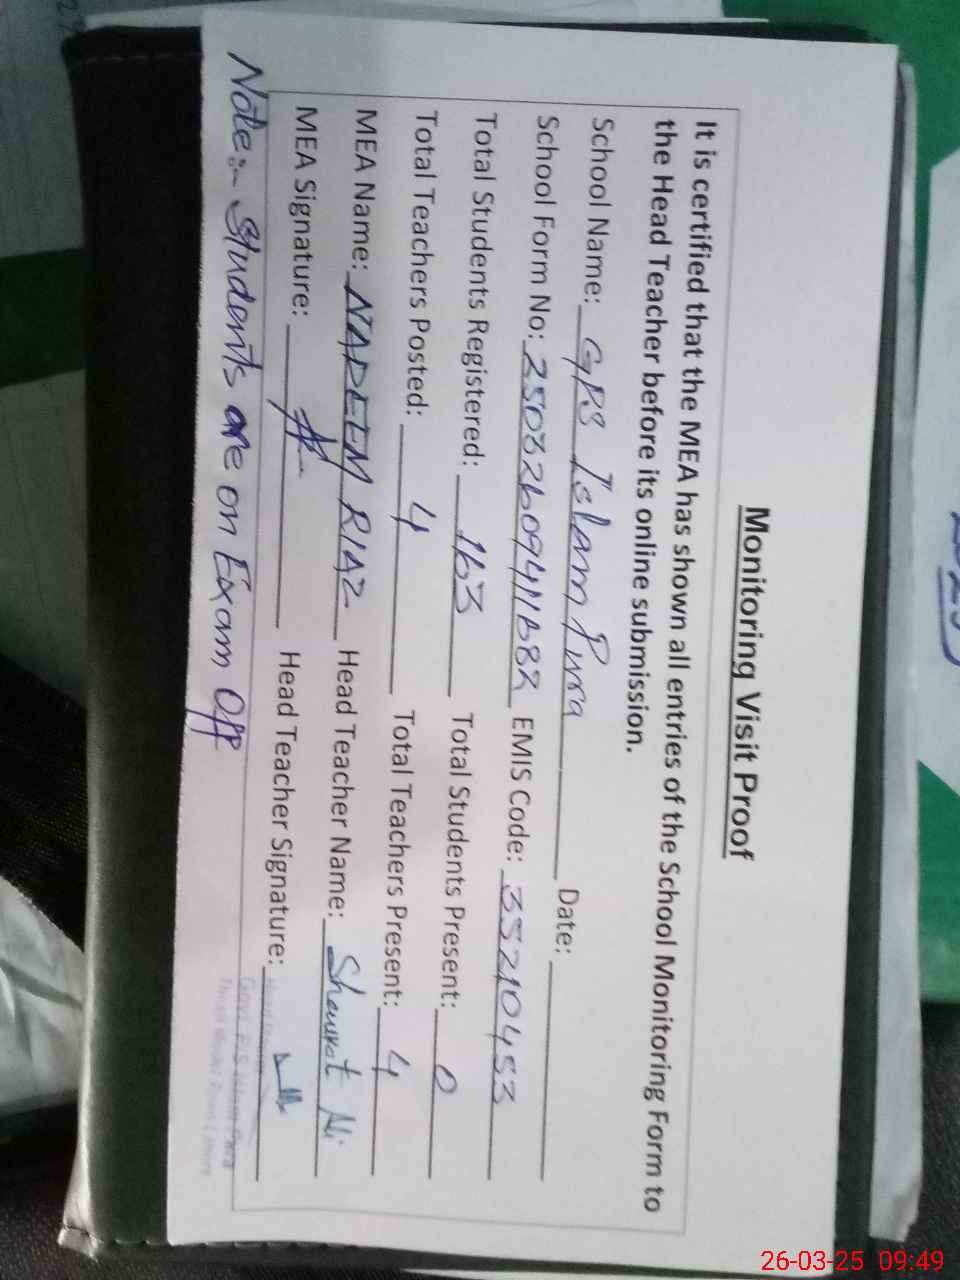 Monitoring Visit Proof
It is certified that the MEA has shown all entries of the School Monitoring Form to
the Head Teacher before its online submission.
School Name: GPS Islam Pura Date:
School Form No: EMIS Code: 35210453
Total Students Registered: 163 Total Students Present: 0
Total Teachers Posted: 4 Total Teachers Present: 4
MEA Name: NADEEM RIAZ Head Teacher Name: Shawkat Ali
MEA Signature: Head Teacher Signature:
Note:- Students are on Exam Off
26-03-25 09:49